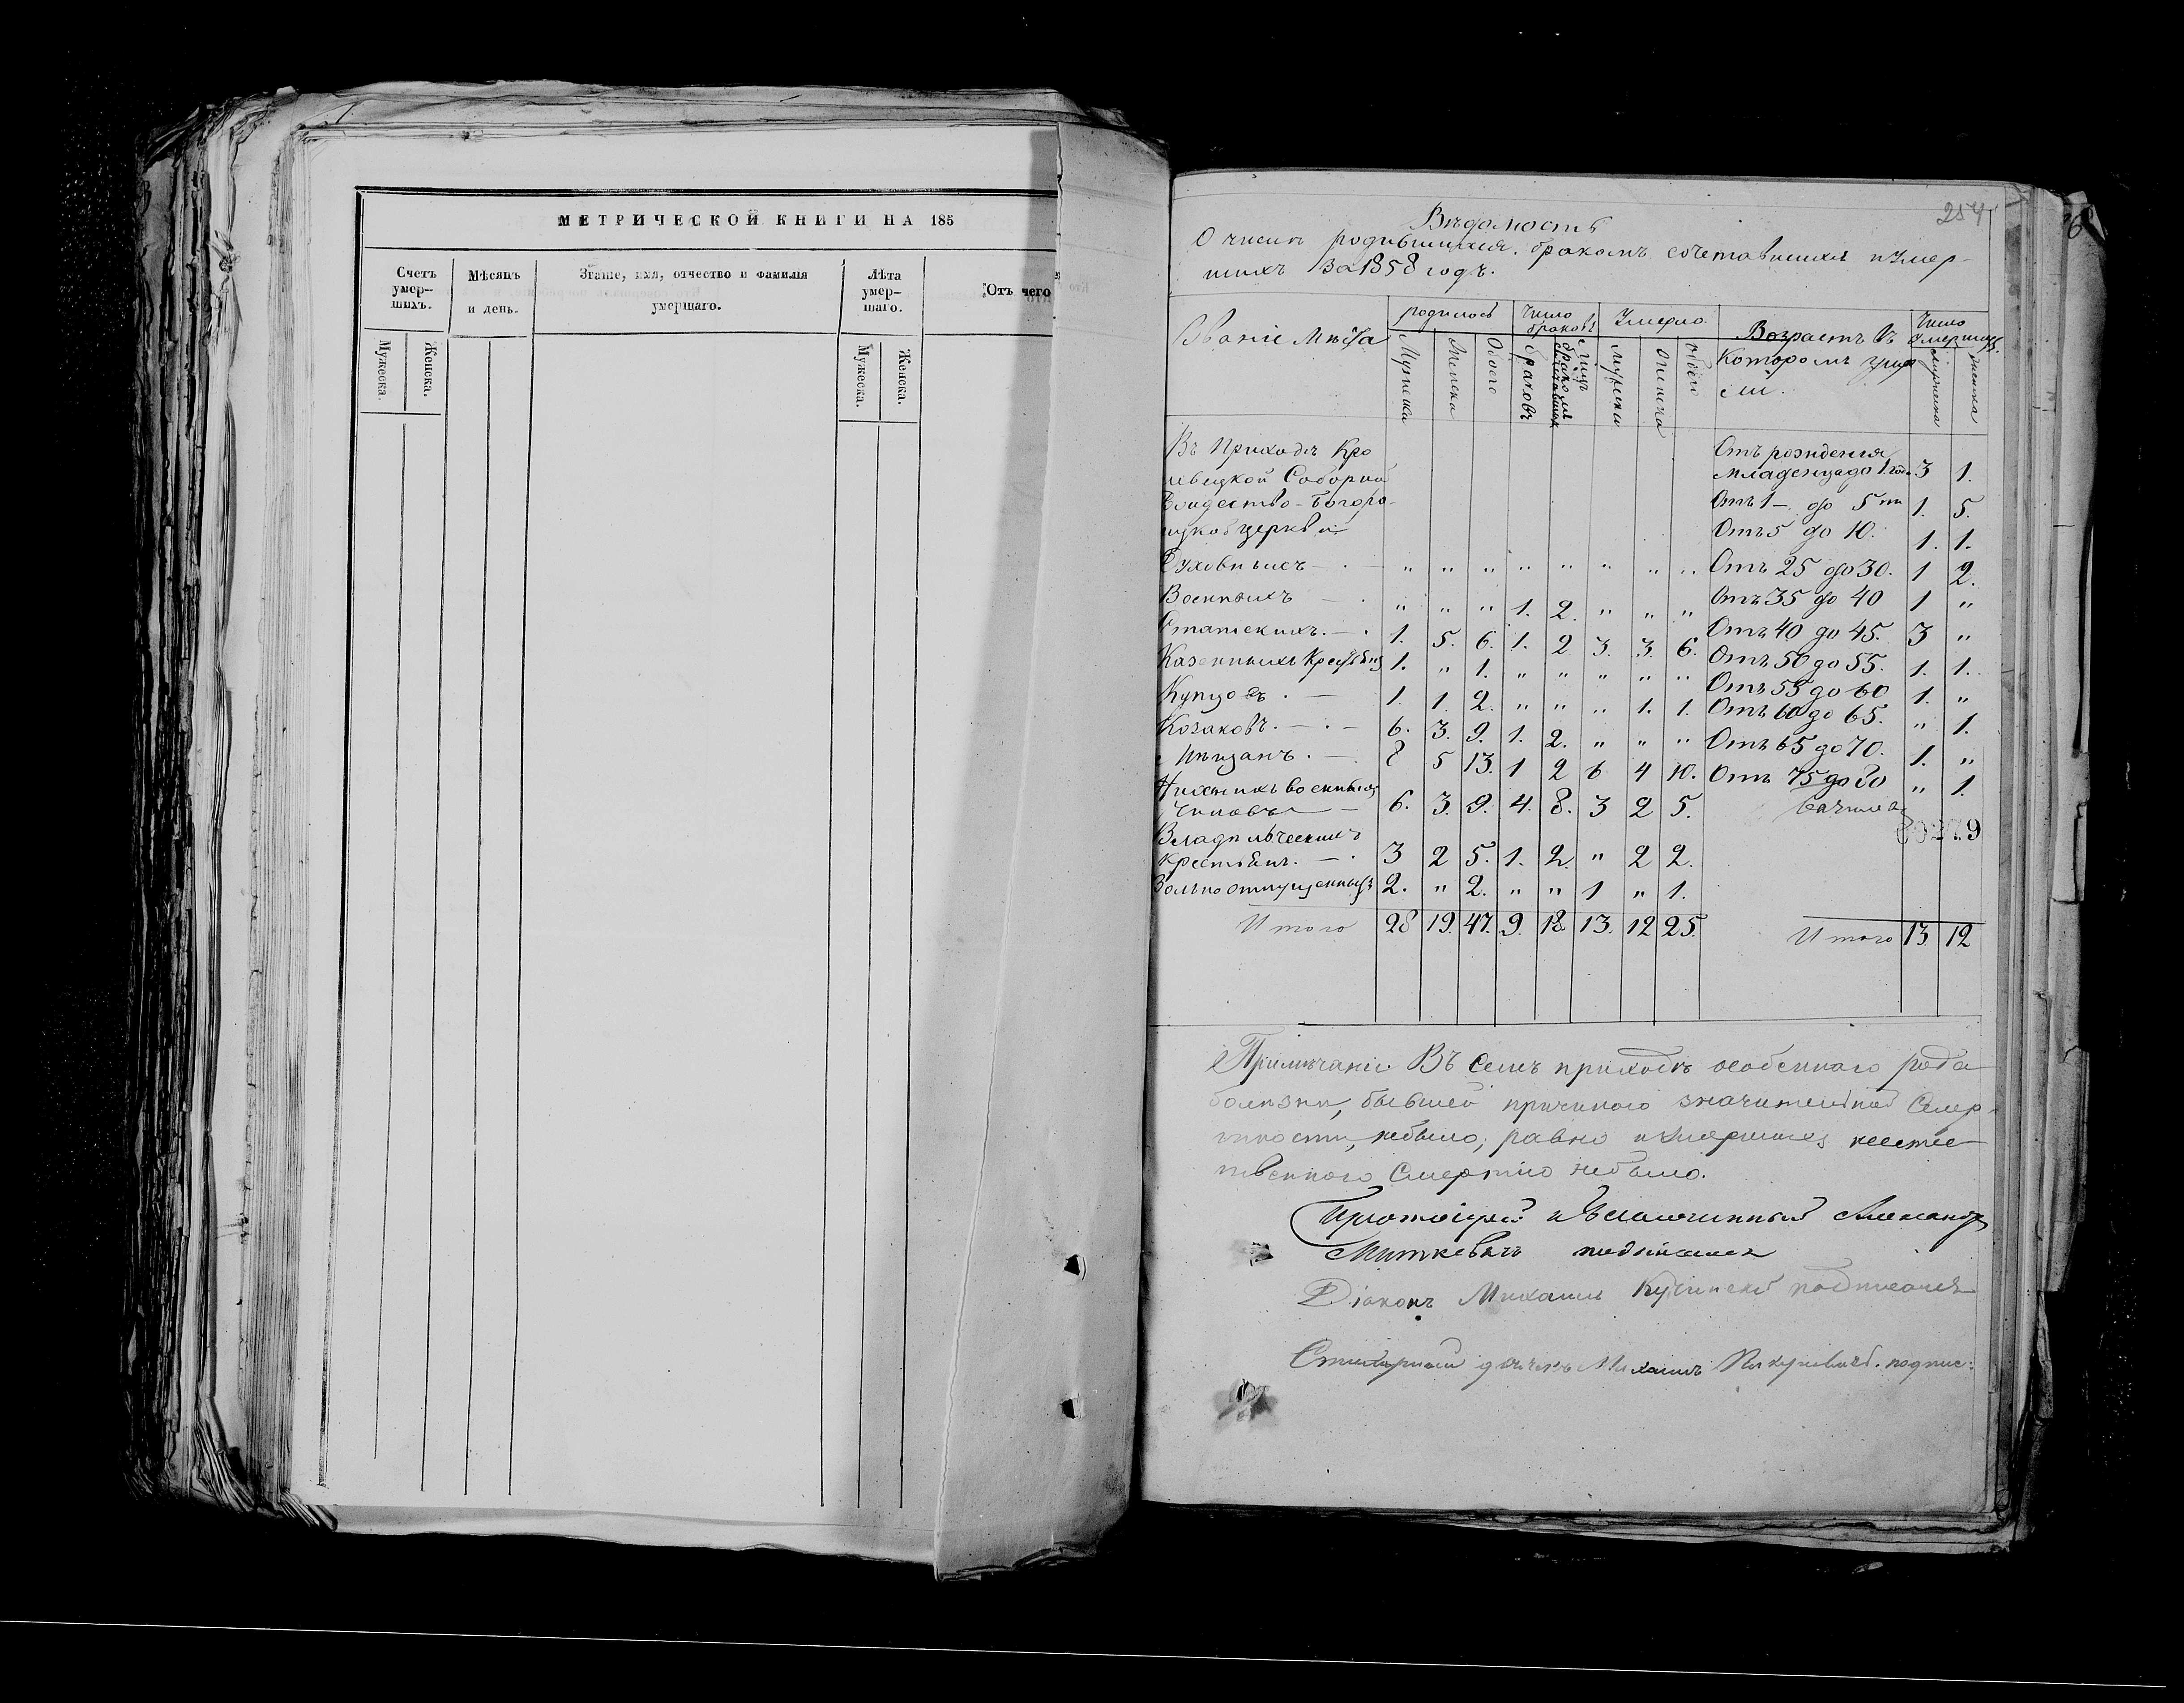 МЕТРИЧЕСКОЙ КНИГИ НА 185
Счетъ умер-шихъ. Мѣсяцъ и день. Званіе, имя, отчество и фамилія умершаго. Лѣта умер-шаго. Отъ чего
Мужеска. Женска. Мужеска. Женска.
254
Вѣдомость
О числѣ родившихся, бракомъ сочетавшихся и умер-
шихъ за 1858 годъ.
Званіе мѣста родилось Число браковъ Умерло Возрастъ въ Число умершихъ.
Мужеска Женска Обоего браковъ Мужеска Женска Обоего Котором умер Мужеска Женска
сіи.
Въ Приходѣ Кро Отъ рожденія
левецкой Соборной младенца до 1 год. 3 1.
Рождество-Богоро- Отъ 1 – до 5ти 1. 5.
дицкой церкви Отъ 5 до 10. 1. 1.
Духовныхъ – . – " " " " " " " " Отъ 25 до 30. 1 2.
Военныхъ – . " " " 1. 2. " " " Отъ 35 до 40 1 "
Статскихъ. – . 1. 5. 6. 1. 2 3. 3. 6. Отъ 40 до 45. 3 "
Казенныхъ Крестьянъ 1. " 1. " " " " " Отъ 50 до 55. 1. 1.
Купцовъ . – 1. 1. 2. " " " 1. 1. Отъ 55 до 60 1. "
Козаковъ. – . – 6. 3. 9. 1. 2. " " " Отъ 60 до 65. " 1.
Мѣщанъ . – . 8 5 13. 1 2 6 4 10. Отъ 65 до 70. 1. "
Нижнихъ военныхъ Отъ 75 до 80 " 1.
Чиновъ – 6. 3. 9. 4. 8. 3 2 5.
Владѣльческихъ
крестьянъ. – . 3 2 5. 1. 2. " 2 2.
Вольноотпущенныхъ 2. " 2. " " 1 " 1.
Итого 28 19. 47. 9. 18. 13. 12 25. Итого 13. 12
Примѣчаніе. Въ семъ приходѣ особеннаго рода
болѣзни, бывшей причиною значительной Смер-
тности, небыло; равно и умершихъ неесте
ственною Смертію небыло.
Протоіерей и Благочинный Александръ
Миткевичъ подписался
Діаконъ Михаилъ подписался
дьячекъ Михаилъ подпис: